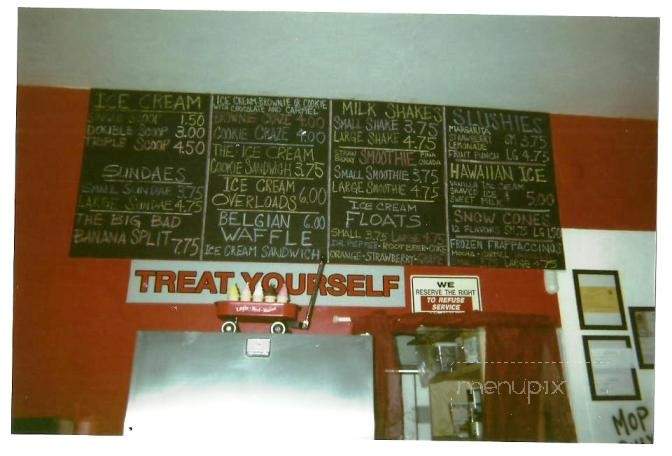 ICE CREAM
SINGLE SCOOP 1.50
DOUBLE SCOOP 3.00
TRIPLE SCOOP 4.50
SUNDAES
SMALL SUNDAE 3.75
LARGE SUNDAE 4.75
THE BIG BAD
BANANA SPLIT 7.75
ICE CREAM, BROWNIE OR COOKIE
WITH CHOCOLATE AND CARAMEL
BROWNIE
COOKIE CRAZE 4.00
THE ICE CREAM
COOKIE SANDWICH 3.75
ICE CREAM
OVERLOADS 6.00
BELGIAN 6.00
WAFFLE
ICE CREAM SANDWICH
MILK SHAKES
SMALL SHAKE 3.75
LARGE SHAKE 4.75
SMOOTHIE
SMALL SMOOTHIE 3.75
LARGE SMOOTHIE 4.75
ICE CREAM
FLOATS
SMALL 3.75
DR. PEPPER - ROOT BEER - COKE
ORANGE - STRAWBERRY
SLUSHIES
MARGARITA
STRAWBERRY SM 3.75
LEMONADE
FRUIT PUNCH LG 4.75
HAWAIIAN ICE
VANILLA ICE CREAM
SHAVED ICE &
SWEET MILK 5.00
SNOW CONES
12 FLAVORS SM .75 LG 1.50
FROZEN FRAPPACCINOS
LARGE 4.75
TREAT YOURSELF
WE
RESERVE THE RIGHT
TO REFUSE
SERVICE
menupix
MOP